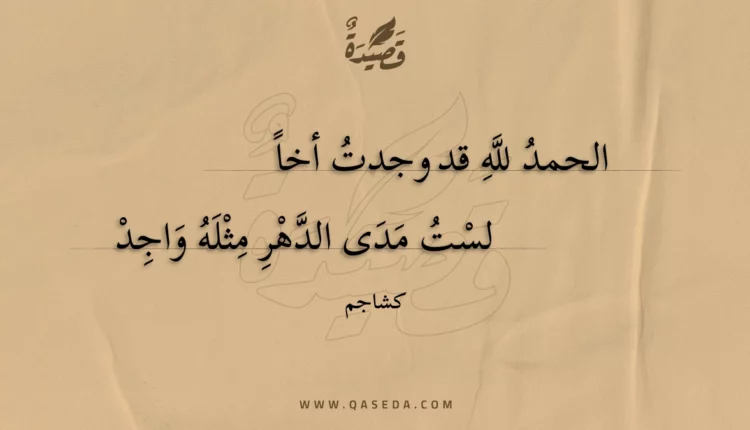 قَصِيْدَةٌ
الحمدُ للَّهِ قد وجدتُ أخاً
لسْتُ مَدَى الدَّهْرِ مِثْلَهُ وَاجِدْ
كشاجم
WWW.QASEDA.COM